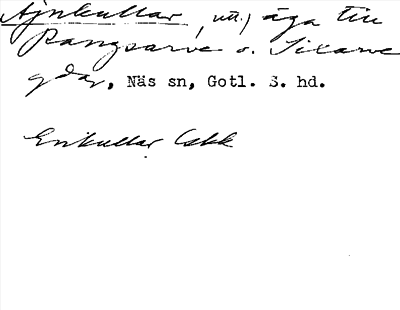 Ajnkullar, utt.) äga till
Rangsarve o. Sixarve
gdar, Näs sn, Gotl. S. hd.
Enkullar Cskk